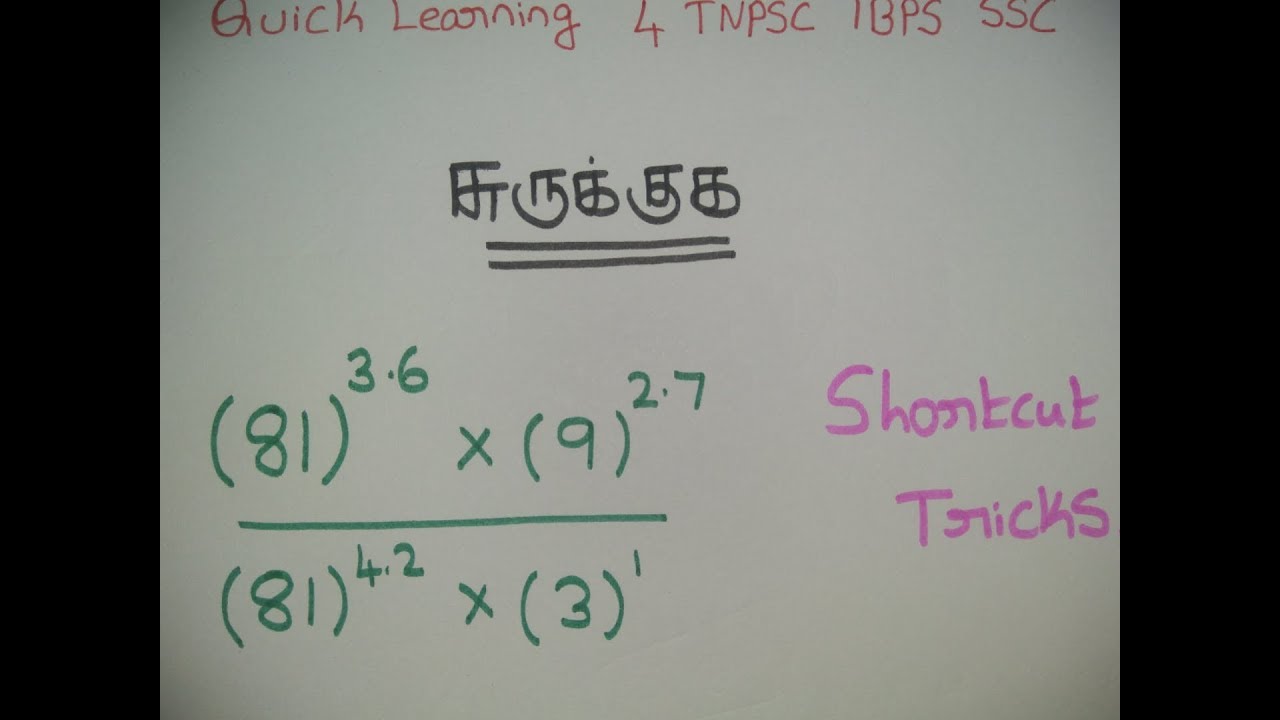 Quick Learning 4 TNPSC IBPS SSC
சுருக்குக
(81)^3.6 × (9)^2.7
(81)^4.2 × (3)^1
Shortcut
Tricks